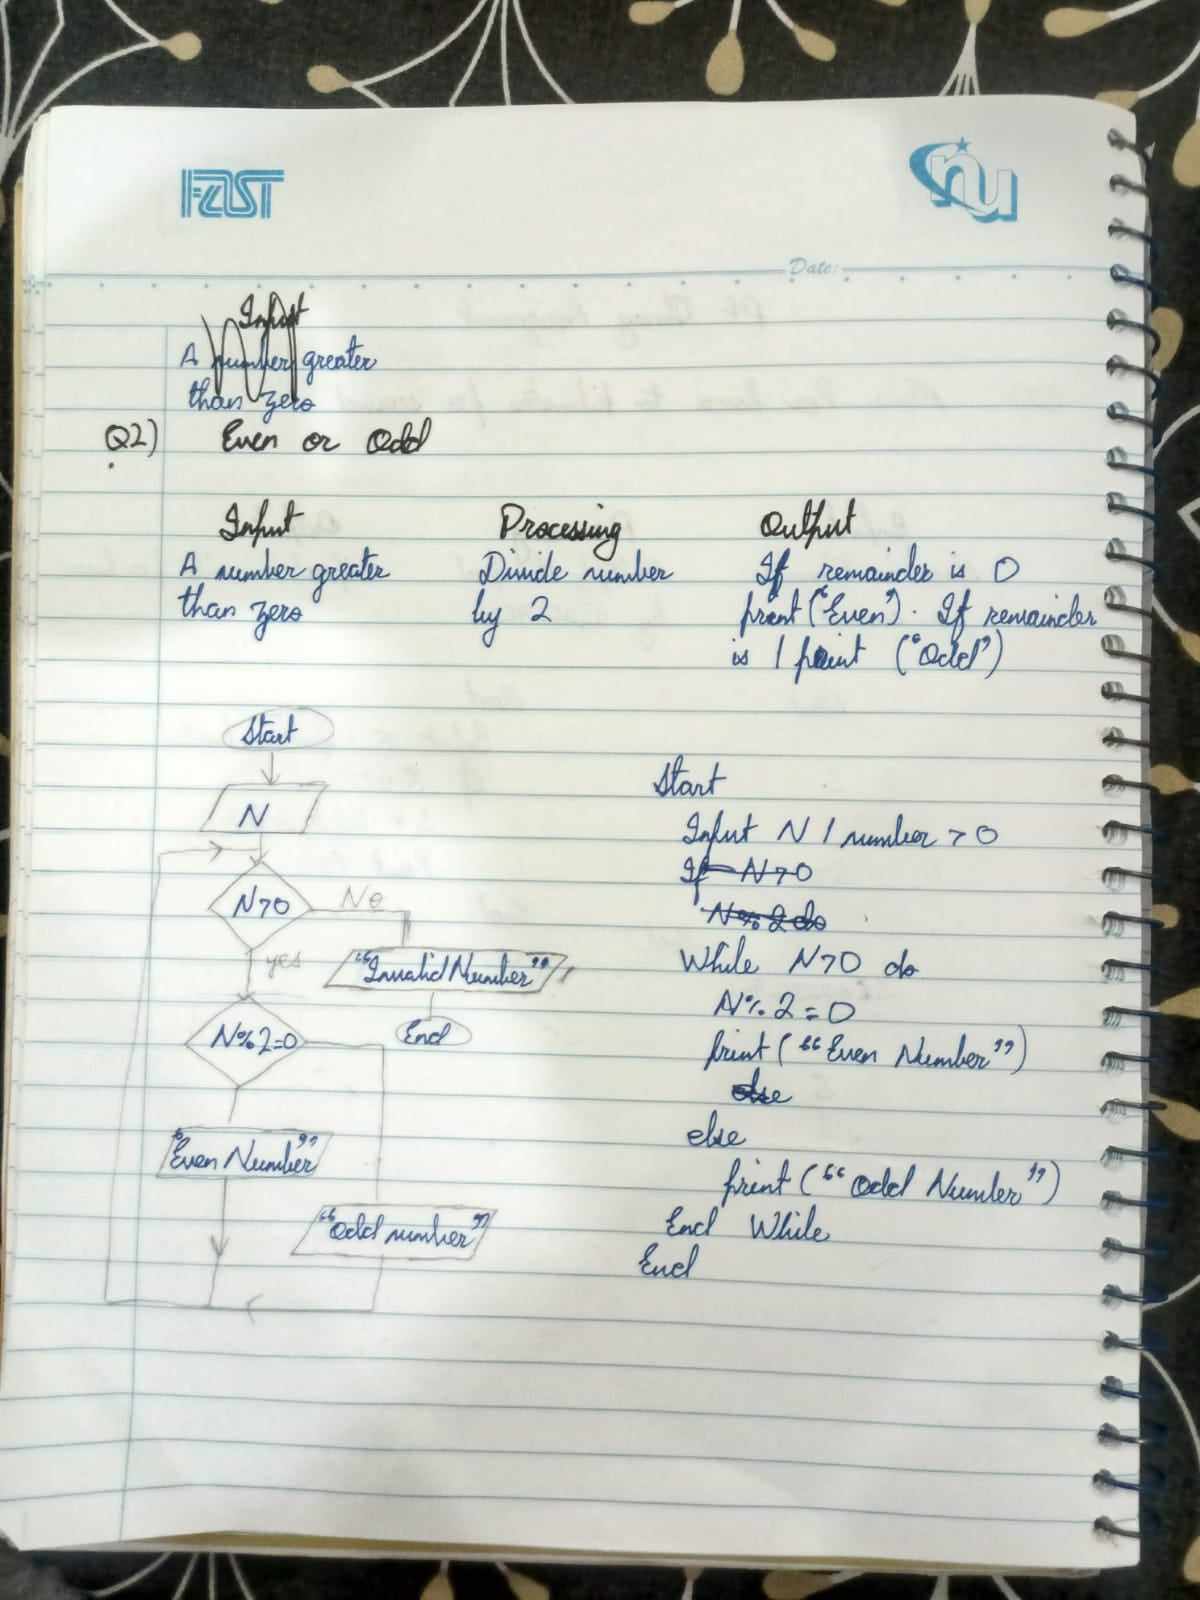 FAST
nu
Date:
Input
A number greater
than zero
Q2) Even or Odd
Input Processing Output
A number greater Divide number If remainder is 0
than zero by 2 print ("Even"). If remainder
is 1 print ("Odd")
Start
N
N>0
No
yes
"Invalid Number"
End
N%2=0
"Even Number"
"Odd number"
Start
Input N / number > 0
If N>0
N%2 do
While N>0 do
N%2=0
print ("Even Number")
else
else
print ("Odd Number")
End While
End